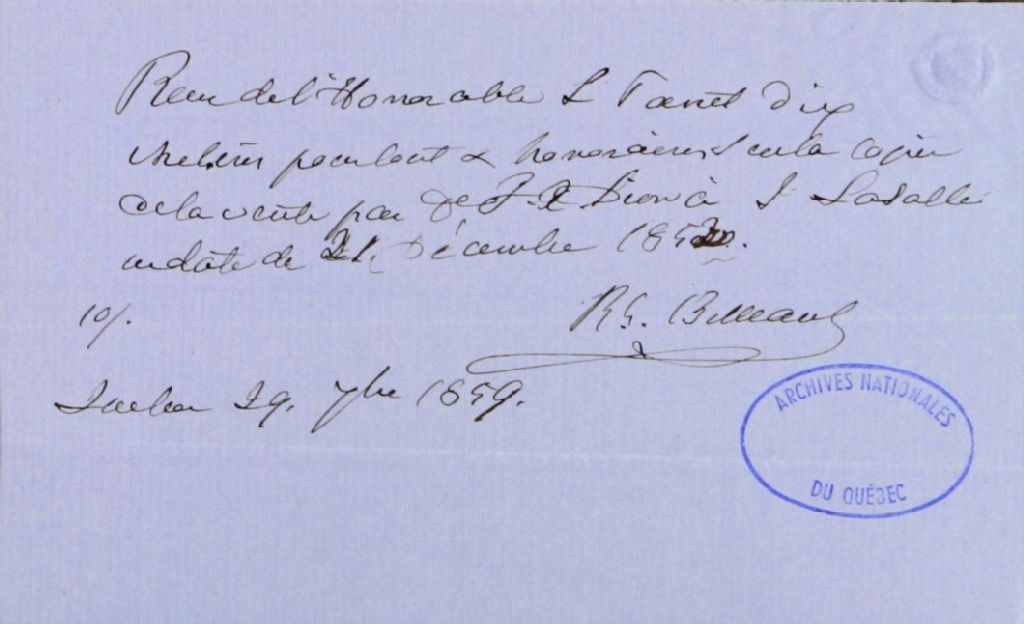 Recu de l'Honorable L Panet dix
chelins pour cout & honoraires sur la copie
de la vente par De F. X. Dion à J Lasalle
en date de 21. Décembre 185
10/.
R G. Belleau
Quebec 29. 7bre 1859.
ARCHIVES NATIONALES
DU QUÉBEC